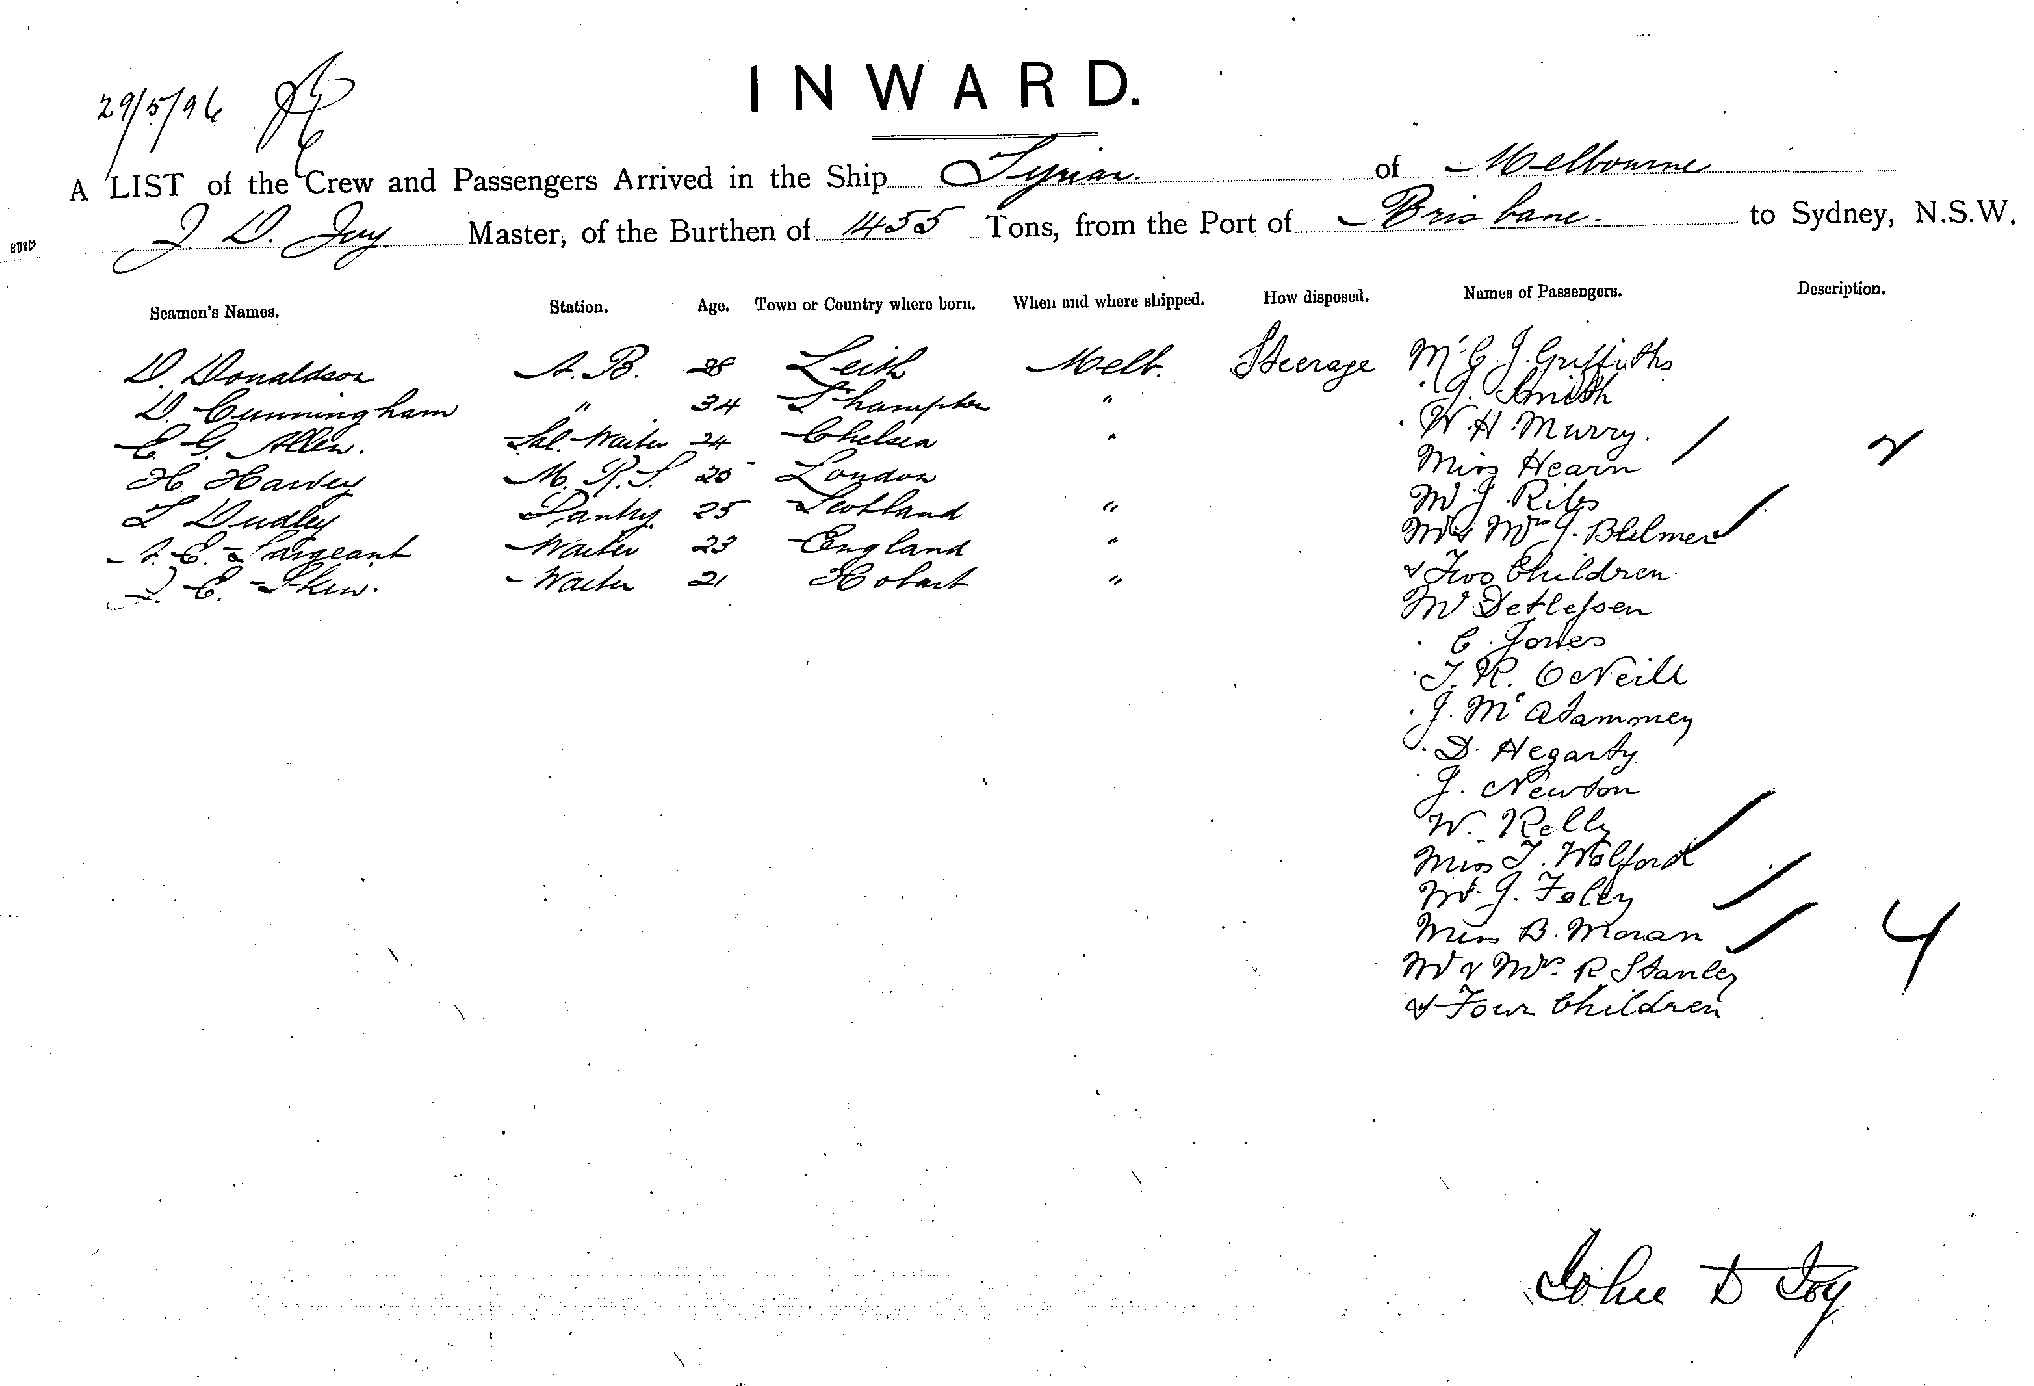 INWARD.
29/5/96
A LIST of the Crew and Passengers Arrived in the Ship Tyrian. of Melbourne
J D. Joy Master, of the Burthen of 1455 Tons, from the Port of Brisbane. to Sydney, N.S.W.
Seamen's Names. Station. Age. Town or Country where born. When and where shipped. How disposed. Names of Passengers. Description.
D. Donaldson A. B. 28 Leith Melb. Steerage Mr G J. Griffiths
D. Cunningham " 34 S'hampton " " J. Smith
E. G. Allen. Sal. Waiter 24 Chelsea " " W. H. Murry.
H. Harvey M. R. S. 20 London Miss Hearn 2
L Dudley Pantry 25 Scotland " Mr J. Riles
A. E. Sargeant Waiter 23 England " Mr & Mrs J.
E. Skew. Waiter 21 Hobart " & Two Children
Mr Detlefsen
" C. Jones
" T. R. O'Neill
" J. Mc
" D. Hegarty
" J. Newton
W. Kelly
Miss T. Wolford
Mr J. Foley
Miss B. Moran 4
Mr & Mrs R Stanley
& Four Children
John D Joy